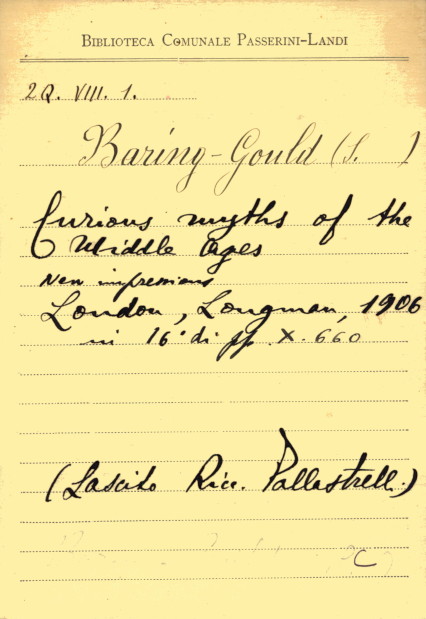 BIBLIOTECA COMUNALE PASSERINI-LANDI
2Q. VIII. 1.
Baring-Gould (S. )
Curious myths of the
Middle Ages
New impressions
London, Longman, 1906
in 16° di pp. X. 660
(Lascito Ric. Pallastrelli)
C